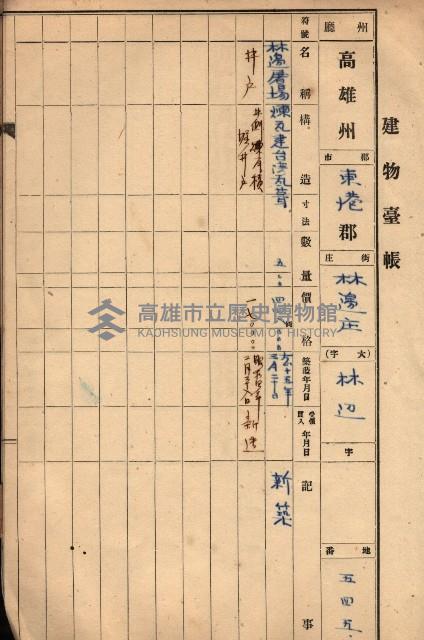 建物臺帳
州廳 高雄州 郡市 東港郡 街庄 林邊庄 (大字) 林辺 字 地番 五四五
符號 名稱 構造 寸法 數量 價格 築造年月日 受領買入年月日 記事
林邊屠場 煉瓦建台湾瓦葺 五 四 大十五年三月二十日 新築
井戸 煉瓦積 井戸 一七〇〇〇 新造
高雄市立歷史博物館
KAOHSIUNG MUSEUM OF HISTORY